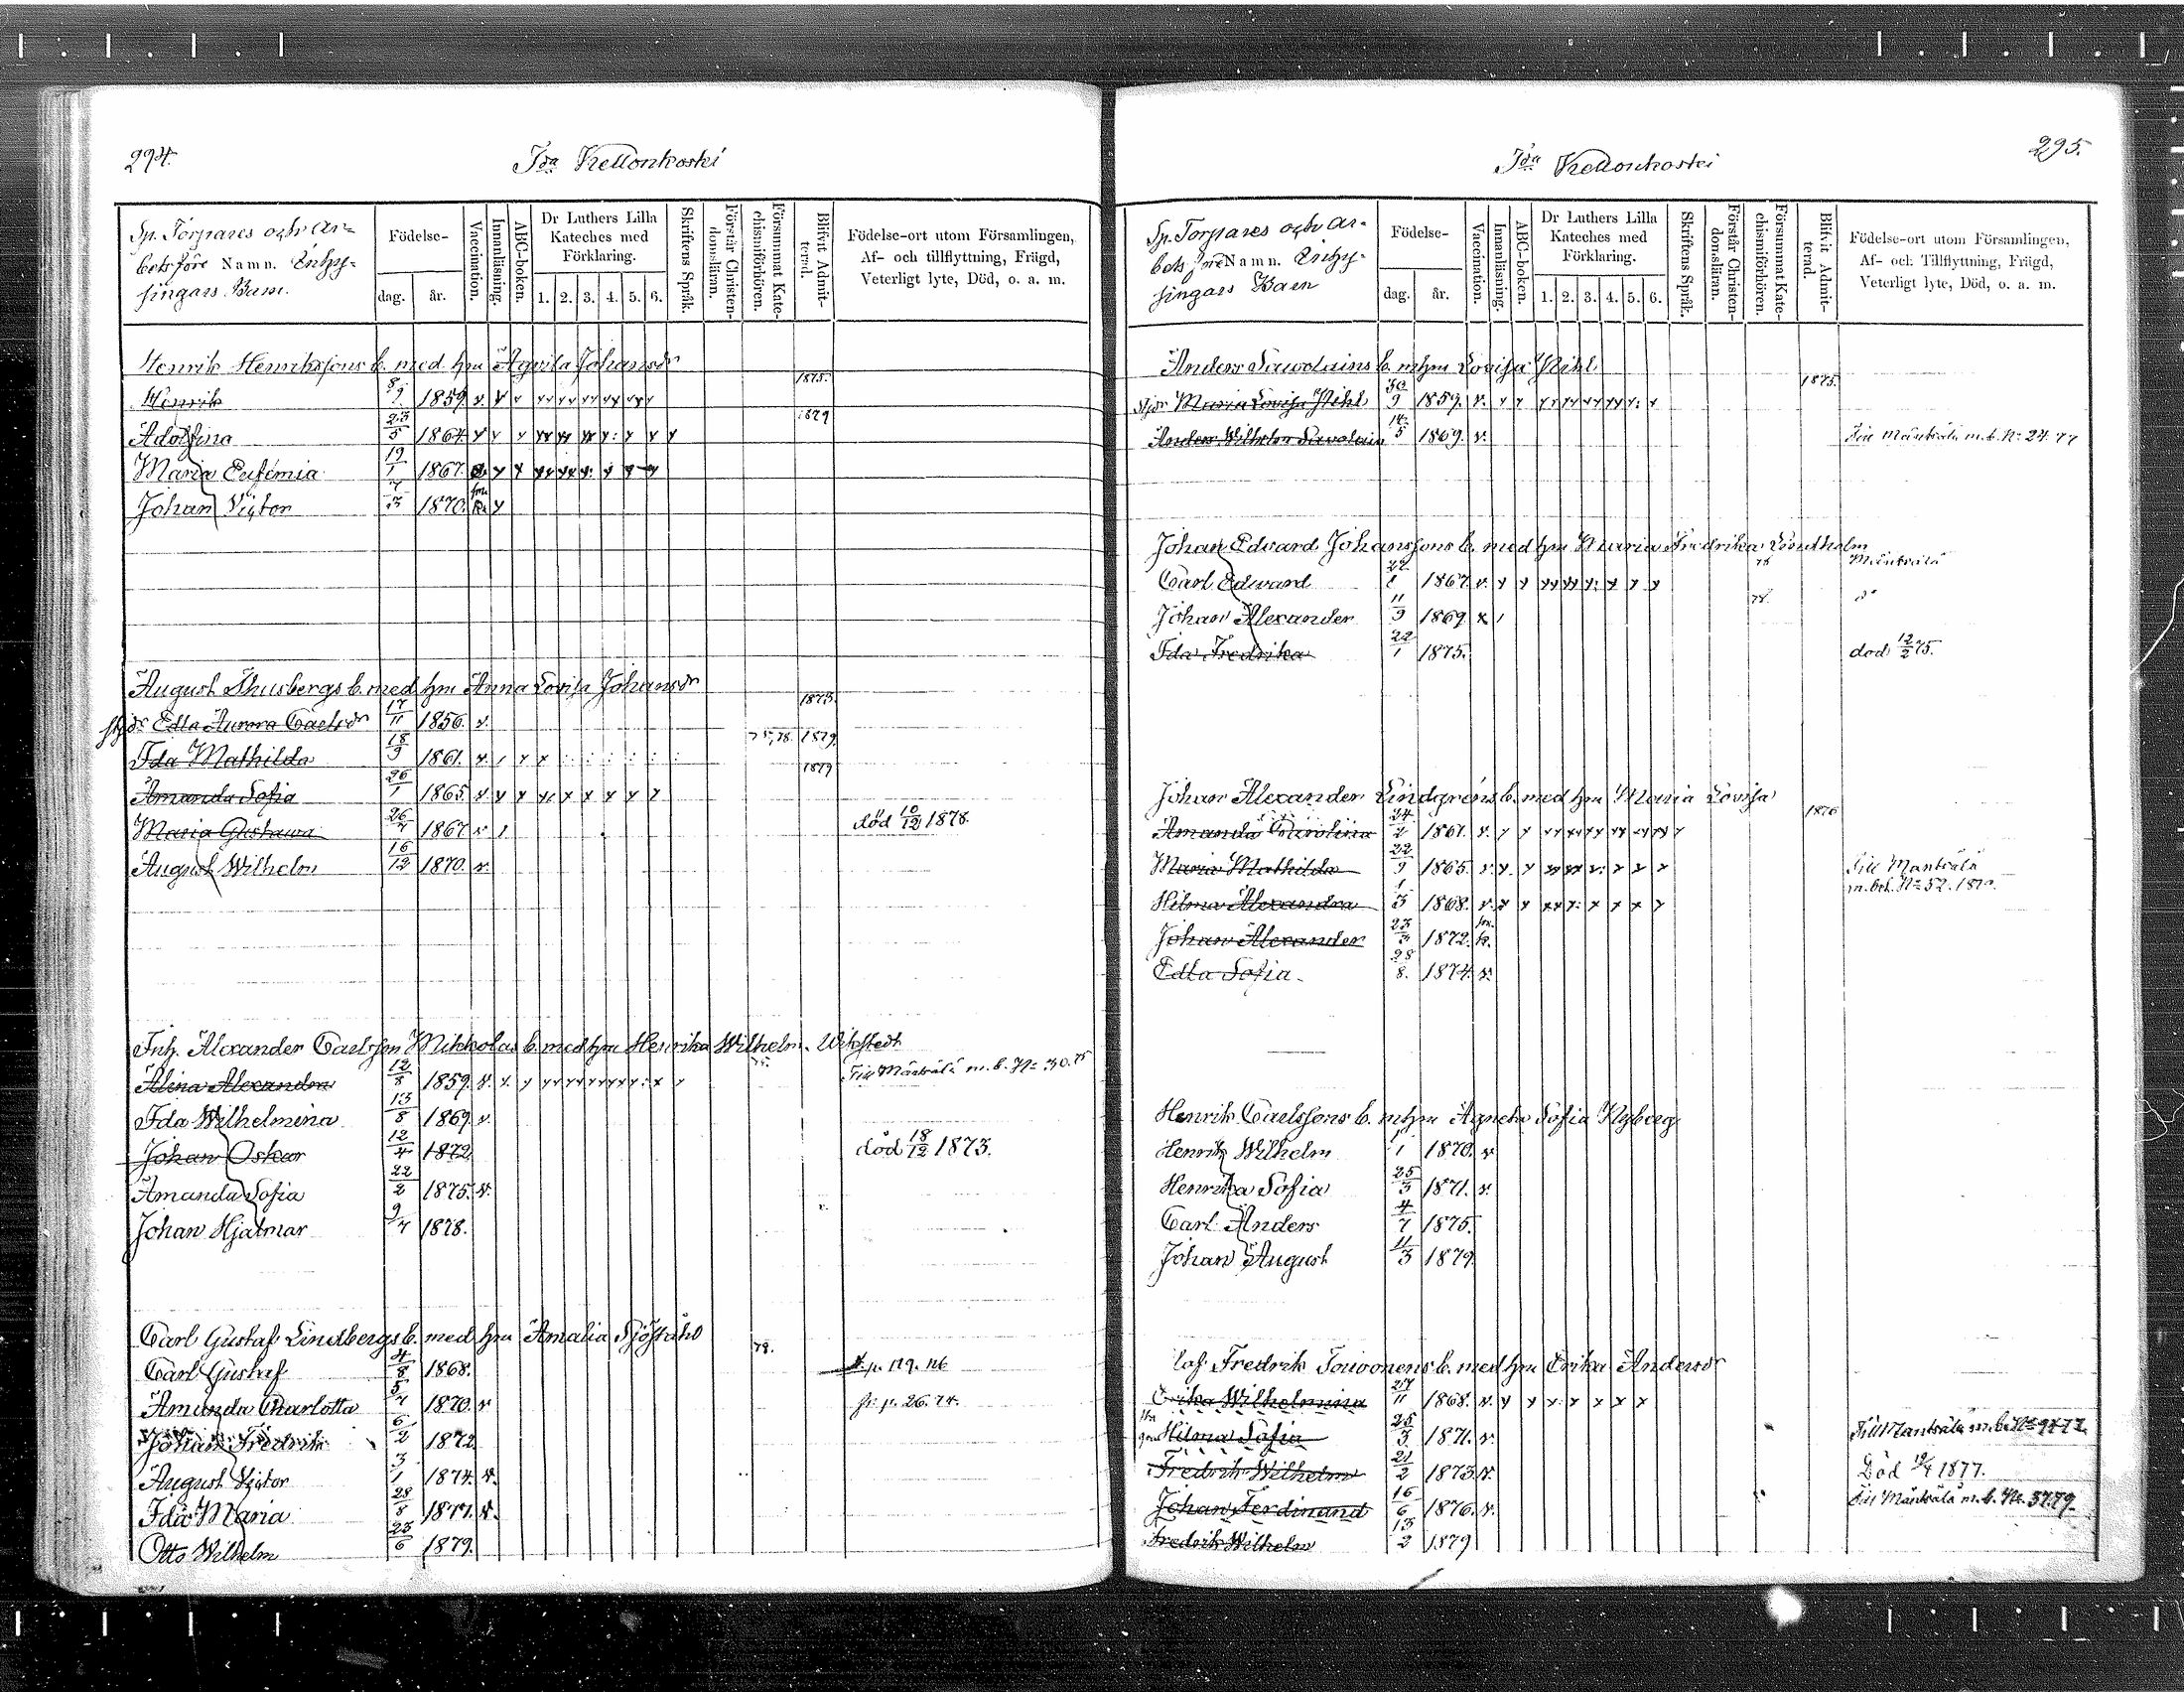 294.
Ida Kellonkoski
Sp. Torpares och Ar-
betsföre Namn. Inhy-
singars Barn.
Födelse-
dag. år.
Vaccination.
Innanläsning.
ABC-boken.
Dr Luthers Lilla
Kateches med
Förklaring.
1. 2. 3. 4. 5. 6.
Skriftens Språk.
Förstår Christen-
domsläran.
Försummat Kate-
chismiförhören.
Blifvit Admit-
terad.
Födelse-ort utom Församlingen,
Af- och tillflyttning, Frägd,
Veterligt lyte, Död, o. a. m.
Henrik Henrikssons b. med hu Johansdr
Henrik 1859. 1875.
Adolfina 23/5 1864 1879
Maria Eufemia 19/1 1867.
Johan Victor 7/3 1870.
August b. med hu Anna Lovisa Johansdr
Edla Aurora Carlsdr 17/11 1856. 1873.
Ida Mathilda 18/9 1861. 75, 78. 1879.
Amanda Sofia 26/1 1865 1879
Maria Gustawa 1867 död 10/12 1878.
August Wilhelm 16/12 1870.
Inh. Alexander Carlsson Mikkolas b. med hu Henrika Wilhelm. Wikstedt
Alina Alexandra 12/8 1859 75. Till Mäntsälä m. b. No 30. 75
Ida Wilhelmina 13/8 1869
Johan Oskar 12/4 1872 död 18/12 1873.
Amanda Sofia 22/2 1875.
Johan Hjalmar 1878.
Carl Gustaf Lindbergs b. med hu Amalia Sjöståhl
Carl Gustaf 4/8 1868. 79.
Amanda Charlotta 1870. fr. p. 26. 74.
Johan Fredrik 6/2 1872
August Victor 3/1 1874.
Ida Maria 28/8 1877.
Otto Wilhelm 23/6 1879.
295.
Ida Kellonkoski
Sp. Torpares och Ar-
bets före Namn. Inhy-
singars Barn
Födelse-
dag. år.
Vaccination.
Innanläsning.
ABC-boken.
Dr Luthers Lilla
Kateches med
Förklaring.
1. 2. 3. 4. 5. 6.
Skriftens Språk.
Förstår Christen-
domsläran.
Försummat Kate-
chismiförhören.
Blifvit Admit-
terad.
Födelse-ort utom Församlingen,
Af- och Tillflyttning, Frägd,
Veterligt lyte, Död, o. a. m.
Anders Sawolains b. m hu Lovisa Pihl
Maria Lovisa Pihl 30/9 1859. 1875.
Anders Wilhelm Sawolain 1869. Till Mäntsälä m. b. No 24. 77
Johan Edvard Johanssons b. med hu Maria Fredrika Lindholm
Carl Edward 1867. 78 Mäntsälä
Johan Alexander 11/9 1869 78. do
Ida Fredrika 22/1 1875. död 12/2 75.
Johan Alexander Lindgréns b. med hu Maria Lovisa
Amanda Carolina 24/2 1861. 1876
Maria Mathilda 22/9 1865 Till Mäntsälä
m. bet. No 52.
Hilma Alexandra 1/3 1868.
Johan Alexander 1872.
Edla Sofia 28/8. 1874.
Henrik Carlssons b. m hu Agneta Sofia Nyberg
Henrik Wilhelm 1870.
Henrika Sofia 25/3 1871.
Carl Anders 4/7 1875.
Johan August 11/3 1879.
Fredrik Touvonens b. med hu Erika Andersdr
Erika Wilhelmina 27/11 1868.
Hilma Sofia 25/3 1871. Till Mäntsälä m. b.
Fredrik Wilhelm 21/2 1873. Död 1877.
Johan Ferdinand 16/6 1876. Till Mäntsälä m. b. No. 37. 79
Fredrik Wilhelm 13/2 1879